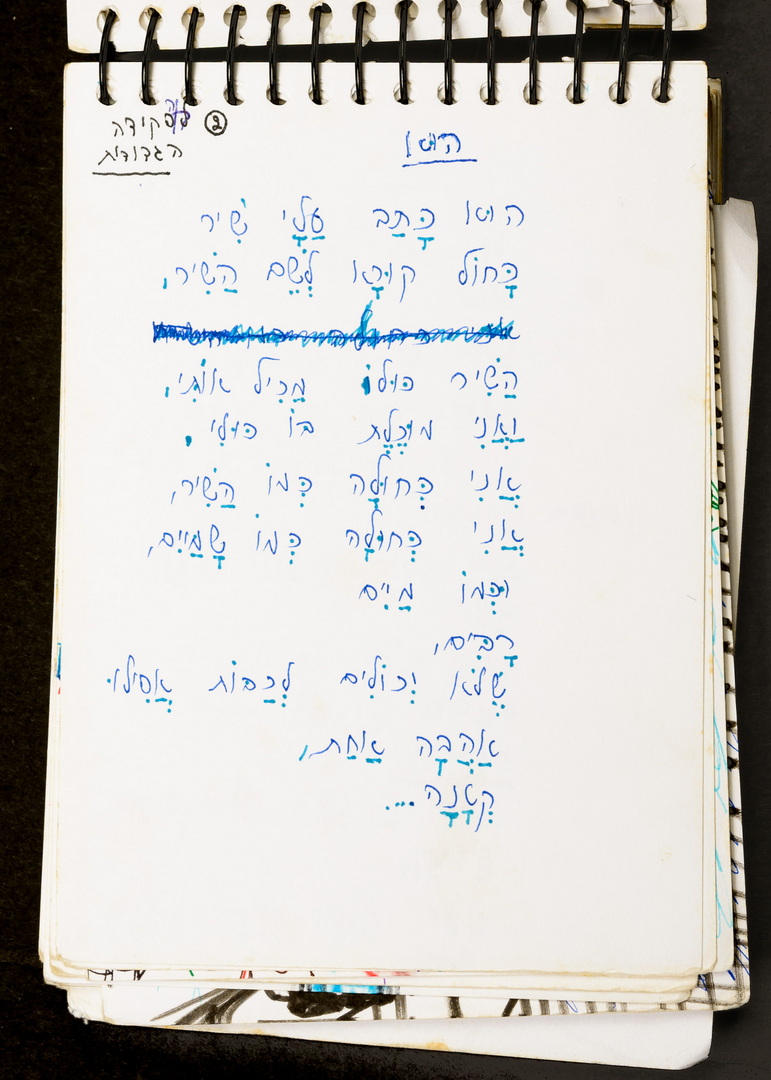 ② לפקידה
הגדודית
הוא
הוּא כָּתַב עָלַי שִׁיר
כָּחוֹל קוֹרָא לְשֵׁם הַשִּׁיר,
הַשִּׁיר כּוּלוֹ מֵכִיל אוֹתִי,
וַאֲנִי מוּכֶלֶת בּוֹ כּוּלִי.
אֲנִי כְּחוּלָה כְּמוֹ הַשִּׁיר,
אֲנִי כְּחוּלָה כְּמוֹ שָׁמַיִים,
וּכְּמוֹ מַיִים
רָבִּים,
שֶׁלֹא יְכוֹלִים לְכַבּוֹת אֲפִילוּ
אַהֲבָה אַחַת,
קְטַנָה....